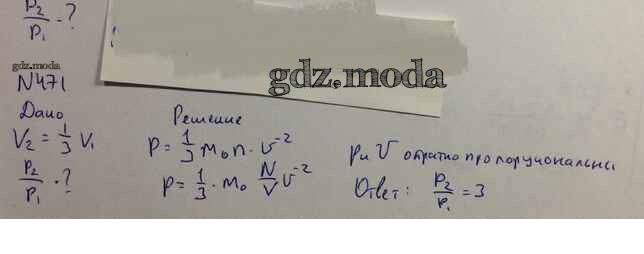 P₂/P₁ - ?
gdz.moda
gdz.moda
N471
Дано
V₂ = 1/3 V₁
P₂/P₁ - ?
Решение
p = 1/3 m₀ n · v⁻²
p = 1/3 · m₀ N/V v⁻²
p и V обратно пропорциональны
Ответ: P₂/P₁ = 3